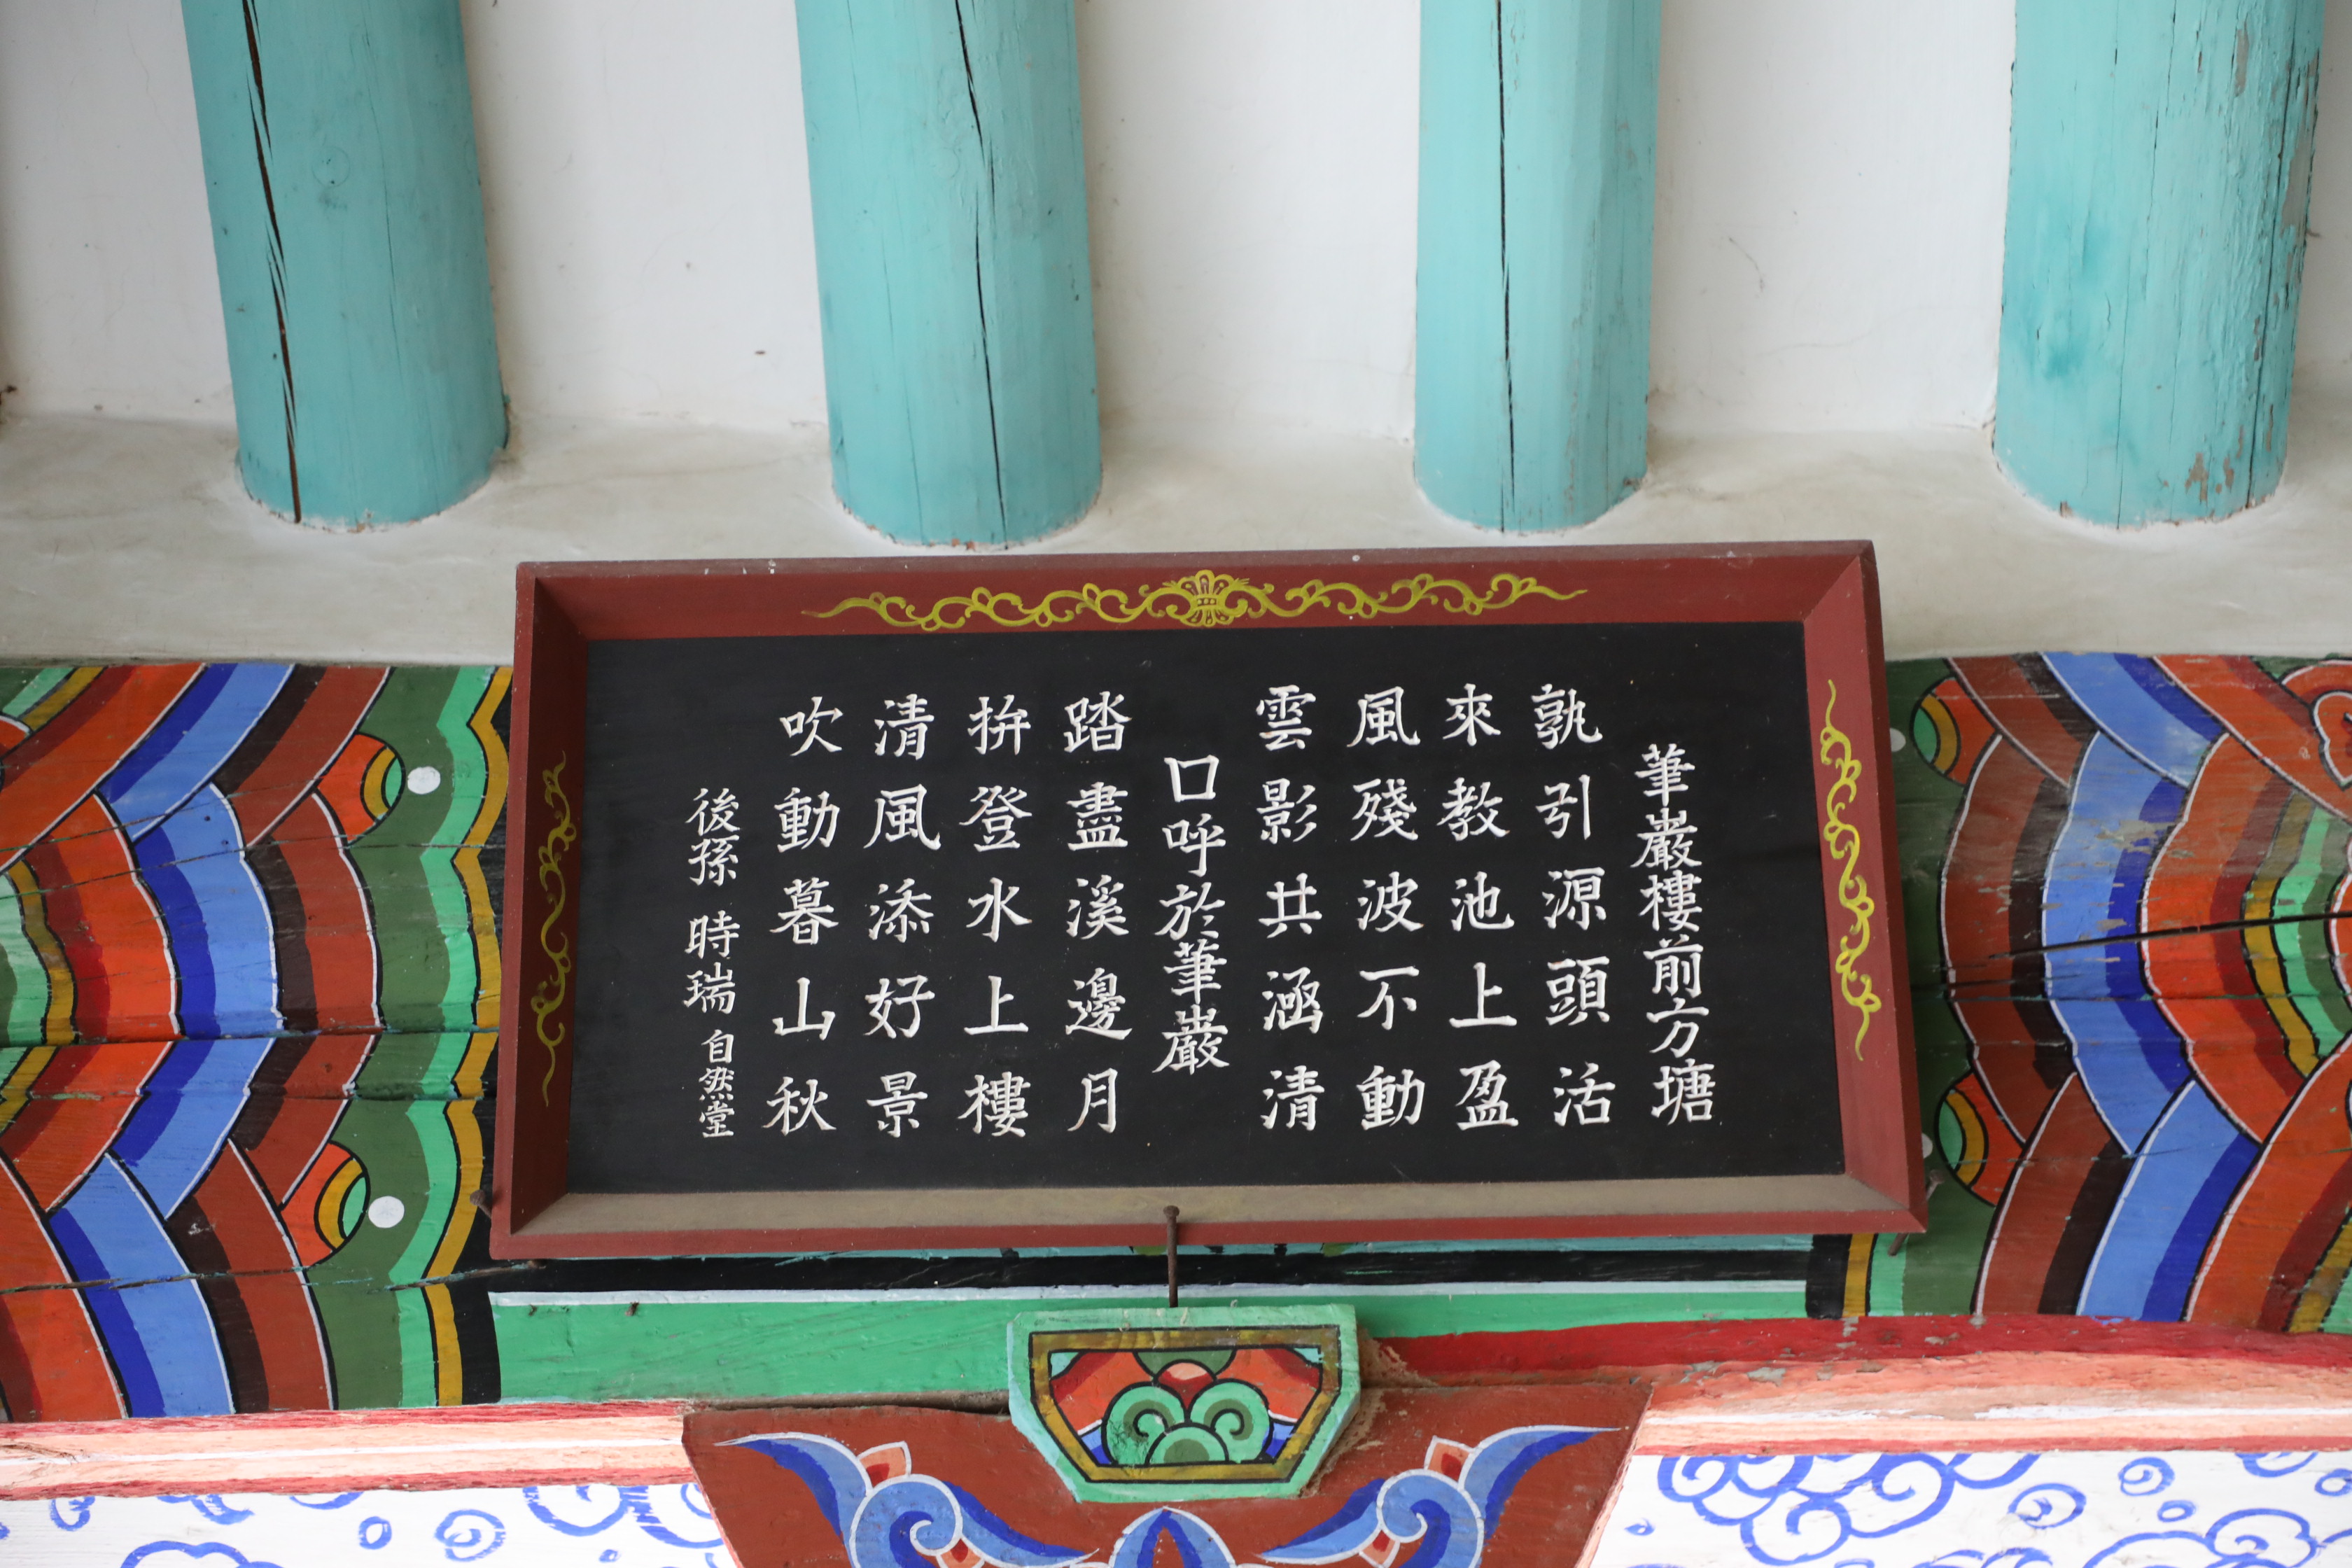 華巖樓前方塘
孰引源頭活
來教池上盈
風殘波不動
雲影共涵清
口呼於華巖
踏盡溪邊月
拚登水上樓
清風添好景
吹動暮山秋
後孫 時瑞 自然堂